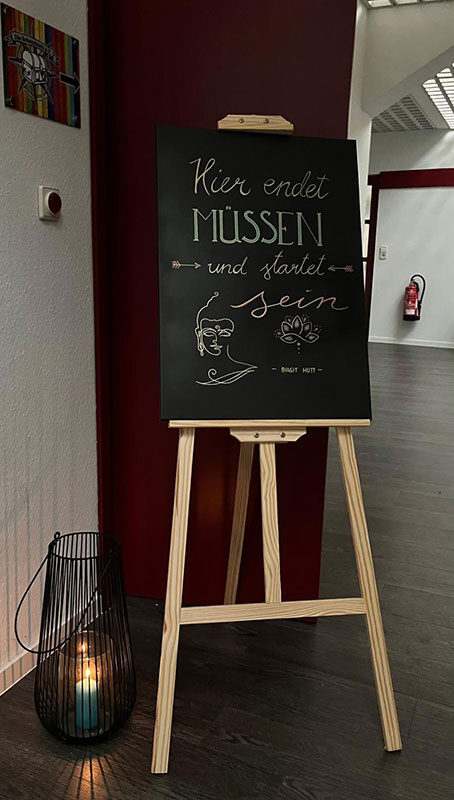 Hier endet
MÜSSEN
und startet
sein
- BIRGIT HUTT -